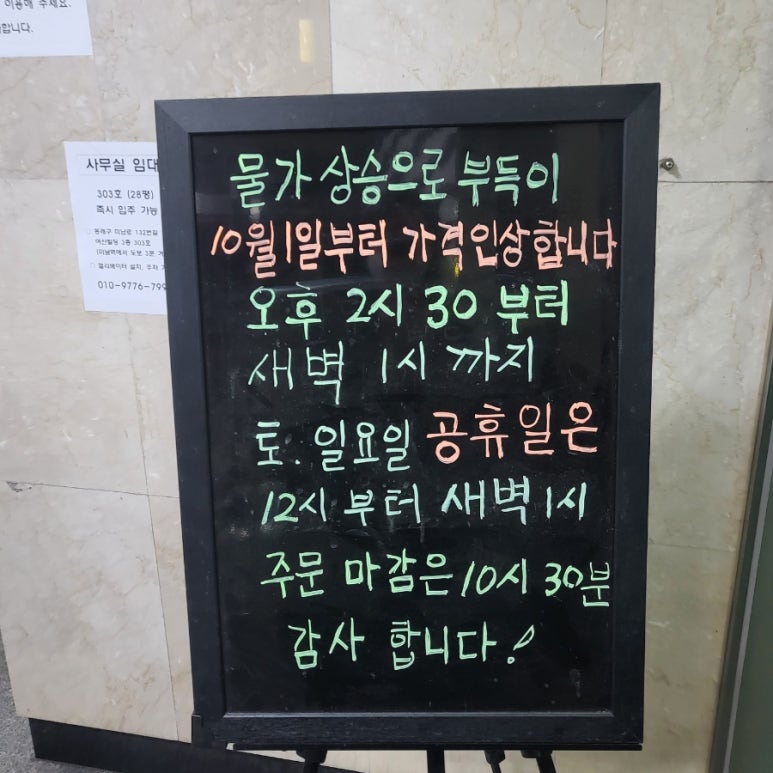 이용해 주세요.
합니다.
사무실 임대
303호 (28평)
즉시 입주 가능
동래구 미남로 132번길
여산빌딩 3층 303호
엘리베이터 설치, 주차
010-9776-799
물가 상승으로 부득이
10월1일부터 가격인상합니다
오후 2시 30 부터
새벽 1시 까지
토. 일요일 공휴일은
12시 부터 새벽 1시
주문 마감은 10시 30분
감사 합니다!